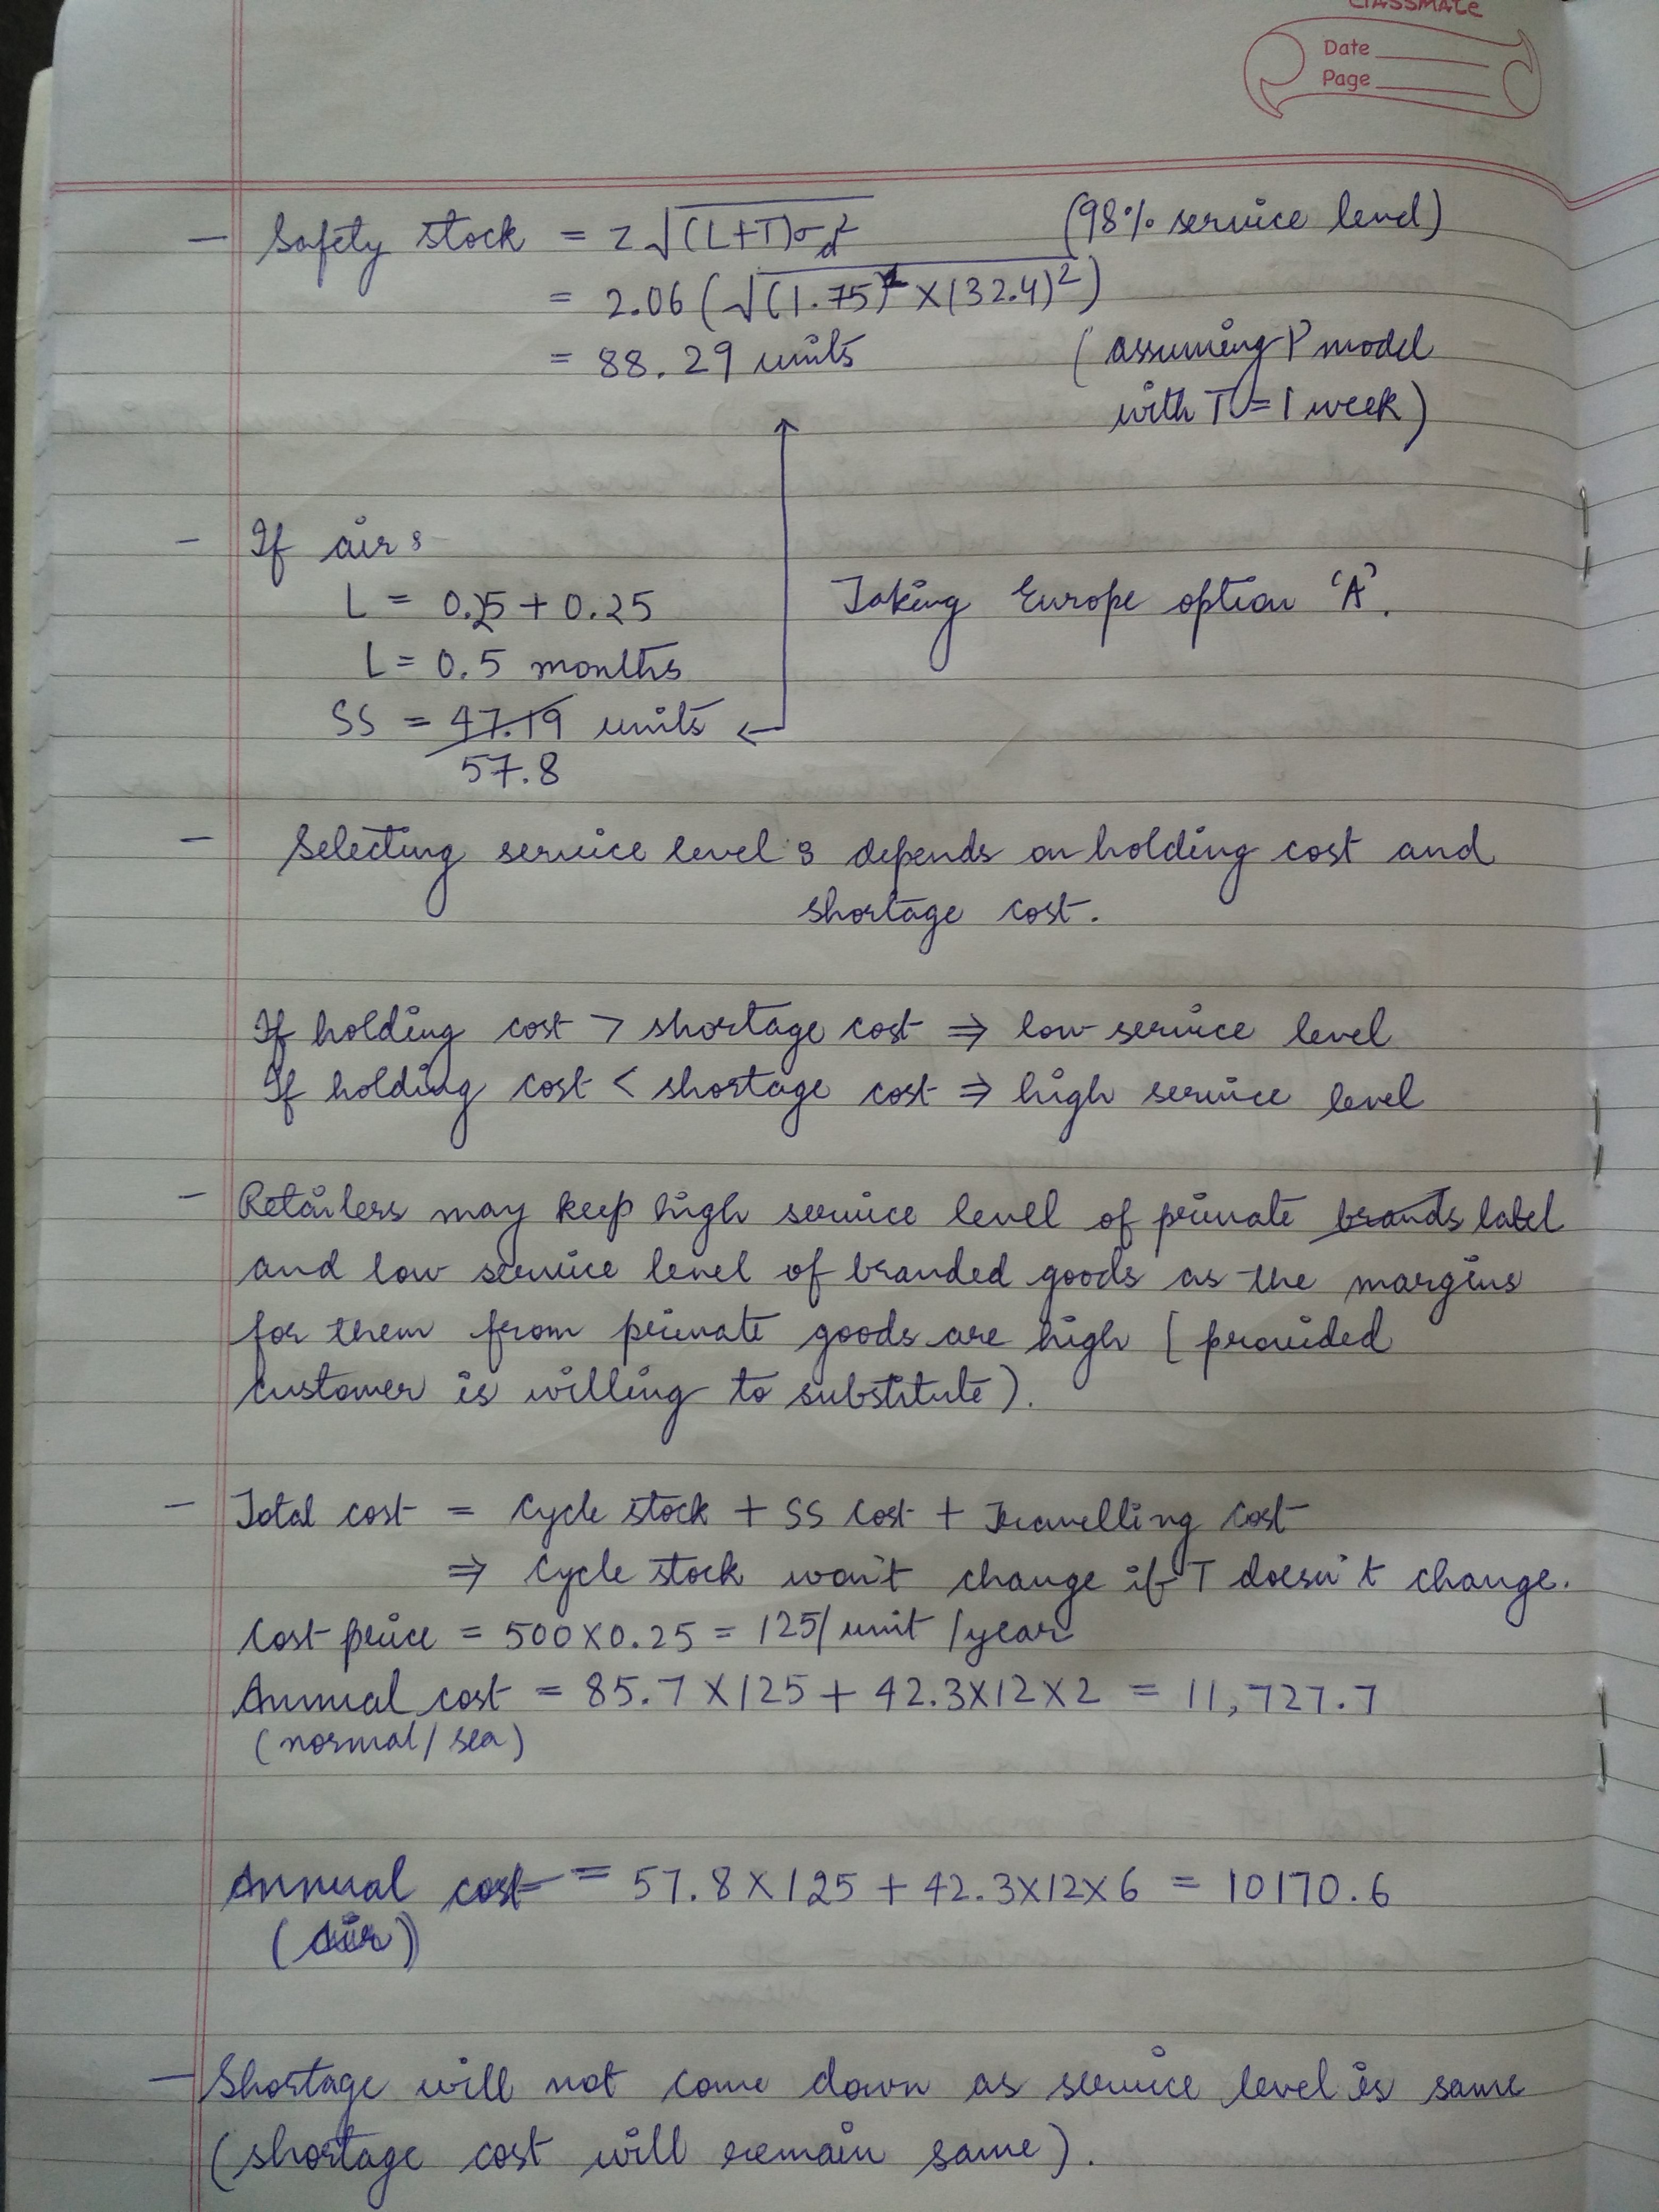 classmate
Date
Page
- Safety stock = z√(L+T)σd² (98% service level)
= 2.06 (√(1.75) × (32.4)²)
= 88.29 units (assuming P model
with T = 1 week)
- If air :
L = 0.25 + 0.25 Taking Europe option 'A'.
L = 0.5 months
SS = 47.19 units
57.8
- Selecting service level : depends on holding cost and
shortage cost.
If holding cost > shortage cost ⇒ low service level
If holding cost < shortage cost ⇒ high service level
- Retailers may keep high service level of private brands label
and low service level of branded goods as the margins
for them from private goods are high (provided
customer is willing to substitute).
- Total cost = Cycle stock + SS cost + Travelling cost
⇒ Cycle stock won't change if T doesn't change.
Cost price = 500×0.25 = 125/unit/year
Annual cost = 85.7 × 125 + 42.3×12×2 = 11,727.7
(normal/sea)
Annual cost = 57.8 × 125 + 42.3×12×6 = 10170.6
(air)
- Shortage will not come down as service level is same
(shortage cost will remain same).